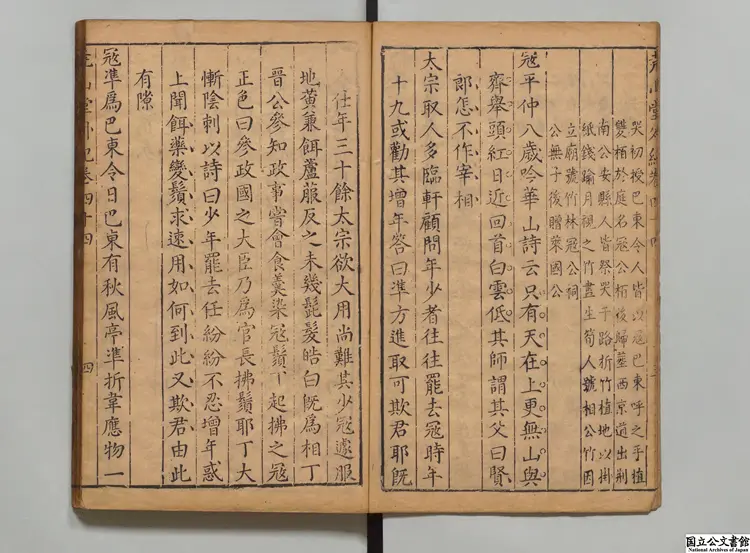 哭初授巴東令人皆以寇巴東呼之手植
雙栢於庭名寇公栢後歸葬西京道出荊
南公安縣人皆祭哭于路折竹植地以掛
紙錢踰月視之竹盡生筍人號相公竹因
立廟號竹林寇公祠
公無子後贈萊國公
寇平仲八歲吟華山詩云只有天在上更無山與
齊舉頭紅日近回首白雲低其師謂其父曰賢
郎怎不作宰相
太宗取人多臨軒顧問年少者往往罷去寇時年
十九或勸其增年答曰準方進取可欺君耶旣
仕年三十餘太宗欲大用尚難其少寇遽服
地黃兼餌蘆菔反之未幾髭髮皓白旣爲相丁
晉公參知政事嘗會食羮染寇鬚丁起拂之寇
正色曰參政國之大臣乃爲官長拂鬚耶丁大
慚陰刺以詩曰少年罷去任紛紛不忍增年惑
上聞餌藥變鬚求速用如何到此又欺君由此
有隙
寇準爲巴東令日巴東有秋風亭準折韋應物一
堯山堂外紀卷四十四
四
国立公文書館
National Archives of Japan